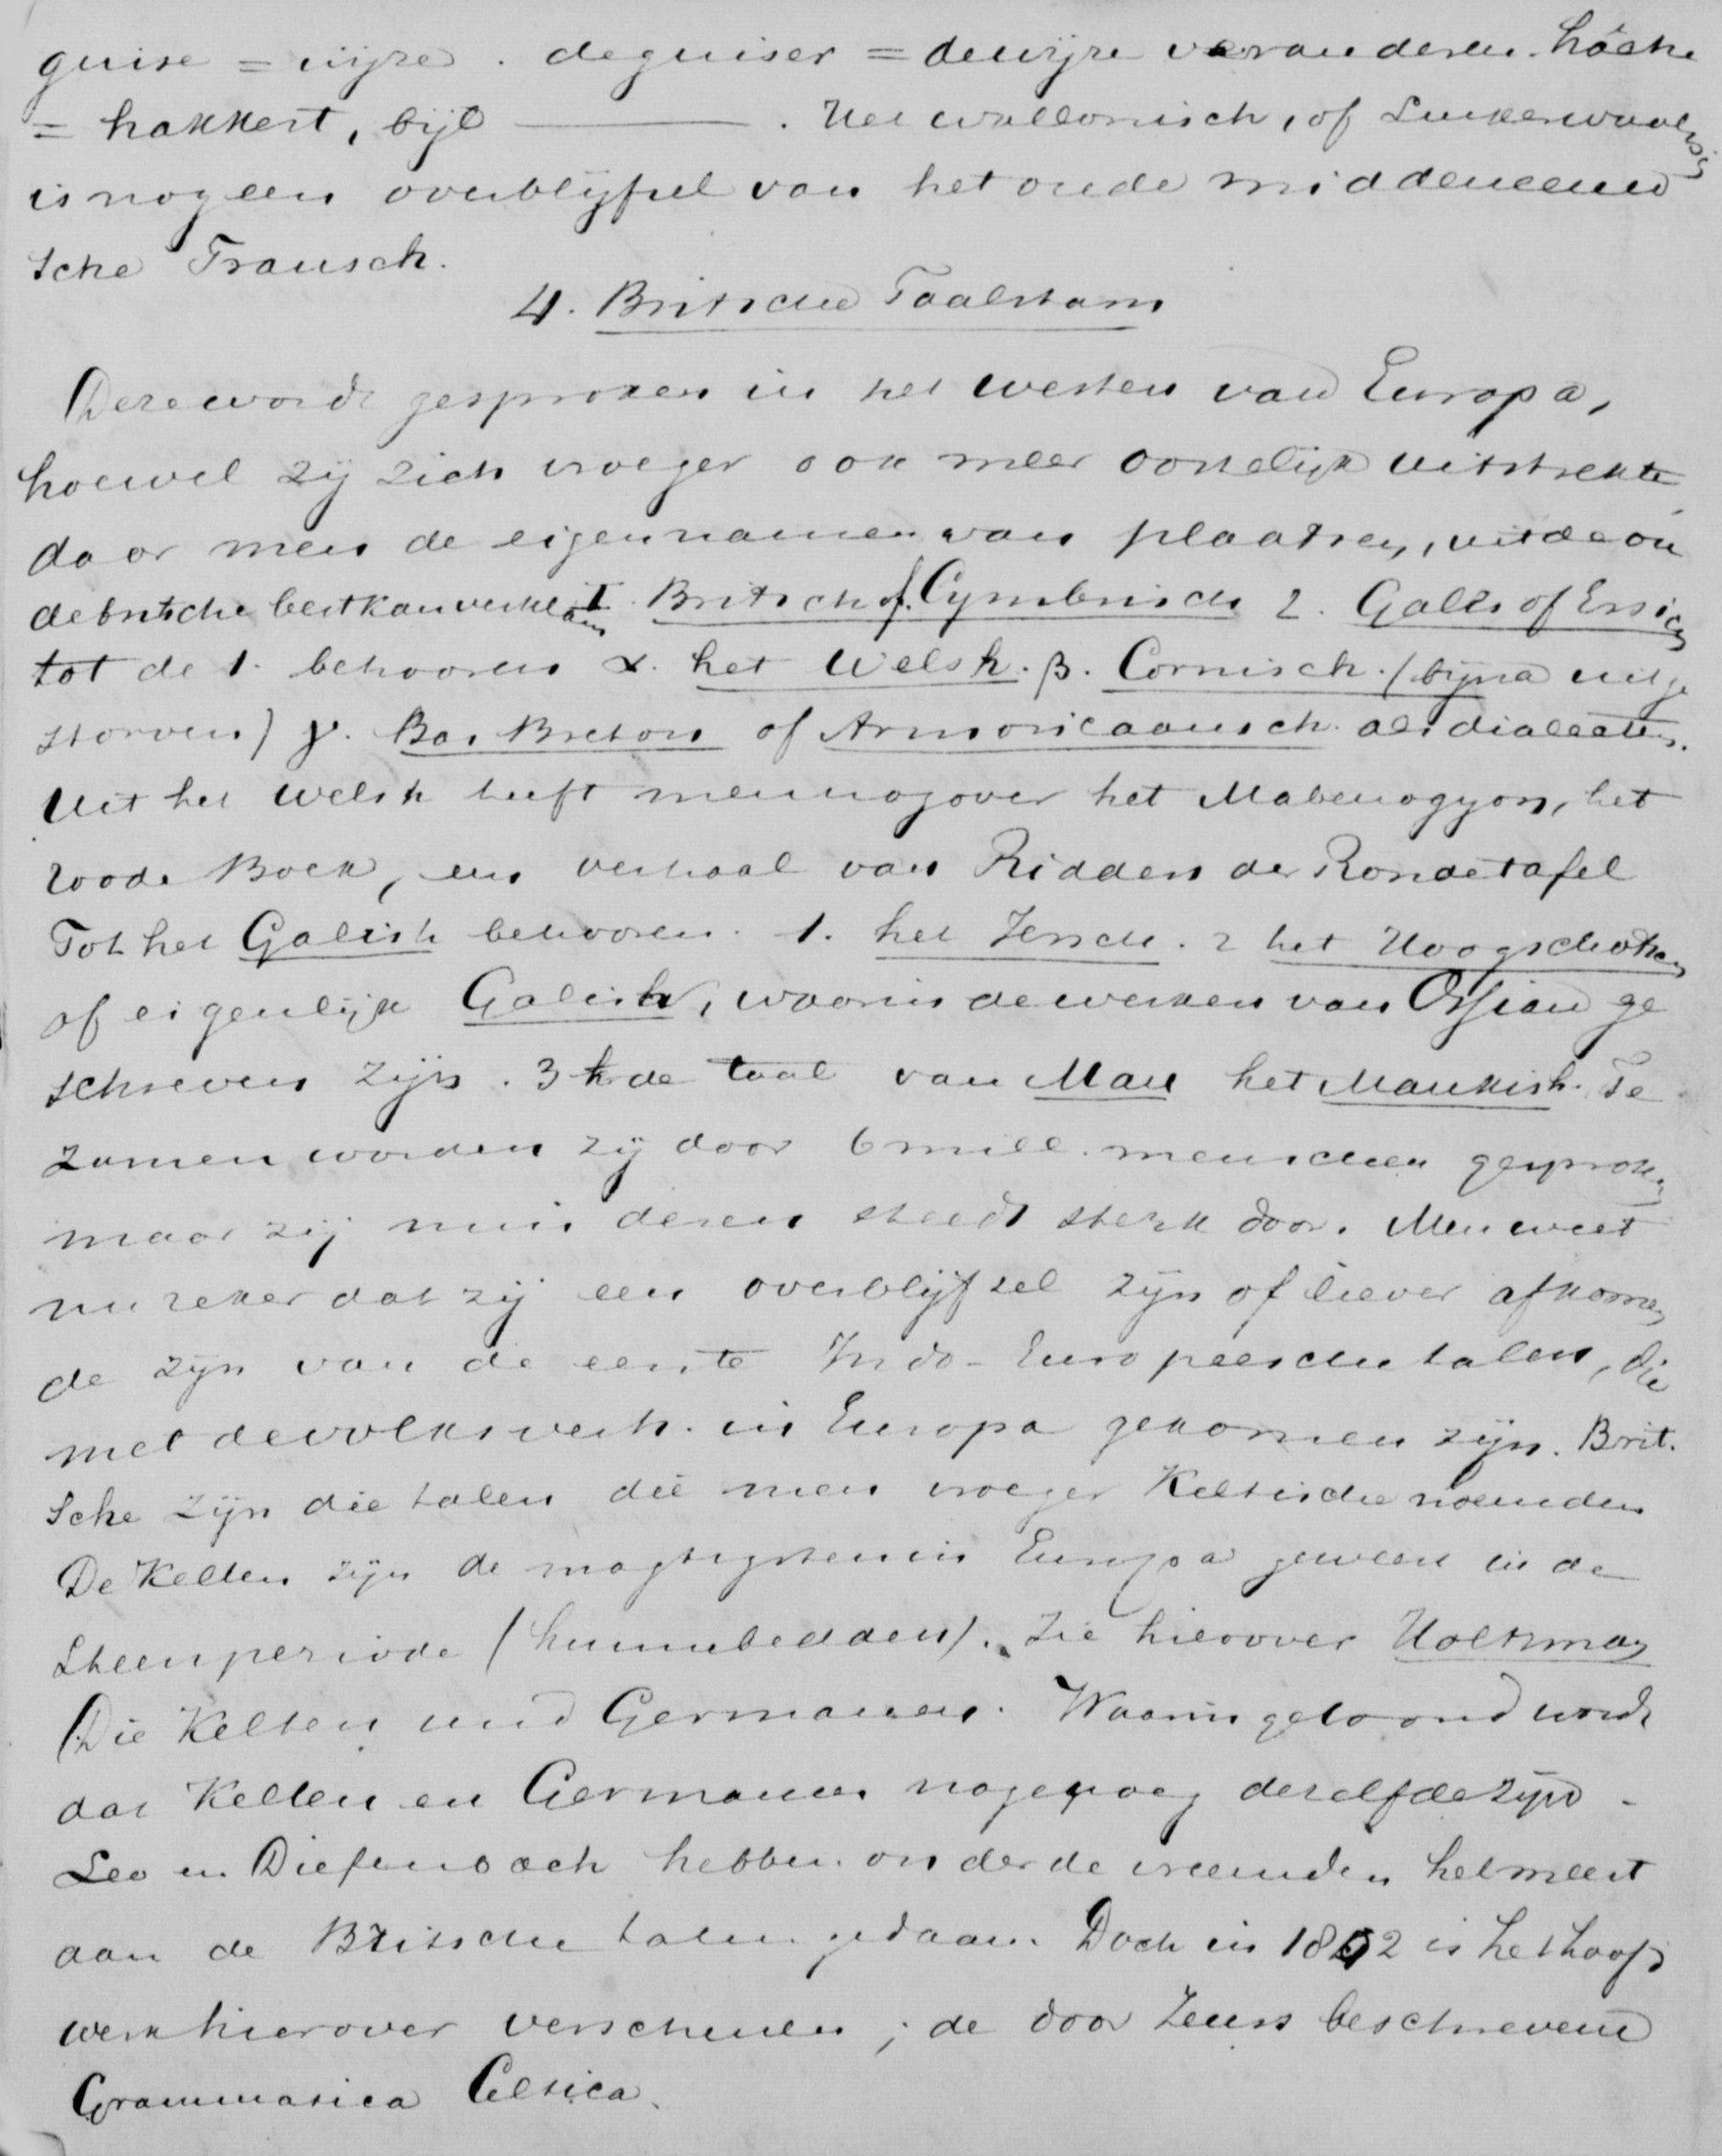 guise = wijze. deguiser = de wijze veranderen. hâche
= hakkert, bijl ———. Het wallonisch, of Luikerwaalsch
is nog een overblijfsel van het oude middeneeuw
sche Fransch.
4. Britsche Taalstam
Deze wordt gesproken in het westen van Europa,
hoewel zij zich vroeger ook meer oostelijk uitstrekte
daar men de eigennamen van plaatsen, uit de ou
de britsche best kan verklaren I. Britsch of Cymbrisch 2. Galis of Ersich
tot de 1. behooren α. het Welsh. β. Cornisch. (bijna uitge
storven) γ. Bas Breton of Armoricaansch als dialecten.
Uit het Welsh heeft men nog over het Mabenogyon, het
roode Boek, een verhaal van Ridders der Ronde tafel
Tot het Galish behooren. 1. het Iersch. 2 het Hoogschotsch
of eigenlijk Galish, waarin de werken van Ossian ge
schreven zijn. 3 de taal van Man het Mankish. Te
zamen worden zij door 6 mill. menschen gesproken
maar zij minderen steeds sterk door. Men weet
nu zeker dat zij een overblijfsel zijn of liever afkomen
de zijn van de eerste Indo-Europeesche talen, die
met de volksverh. in Europa gekomen zijn. Brit.
sche zijn die talen die men vroeger Keltische noemden
De Kelten zijn de magtigsten in Europa geweest in de
Steenperiode (hunnebedden). Zie hierover Holtzman
Die Kelten und Germanen. Waarin getoond wordt
dat Kelten en Germanen nagenoeg dezelfde zijn.
Leo en Diefenbach hebben onder de vreemden het meest
aan de Britsche talen gedaan. Doch in 1852 is het hoofd
werk hierover verschenen; de door Zeuss beschrevene
Grammatica Celtica.